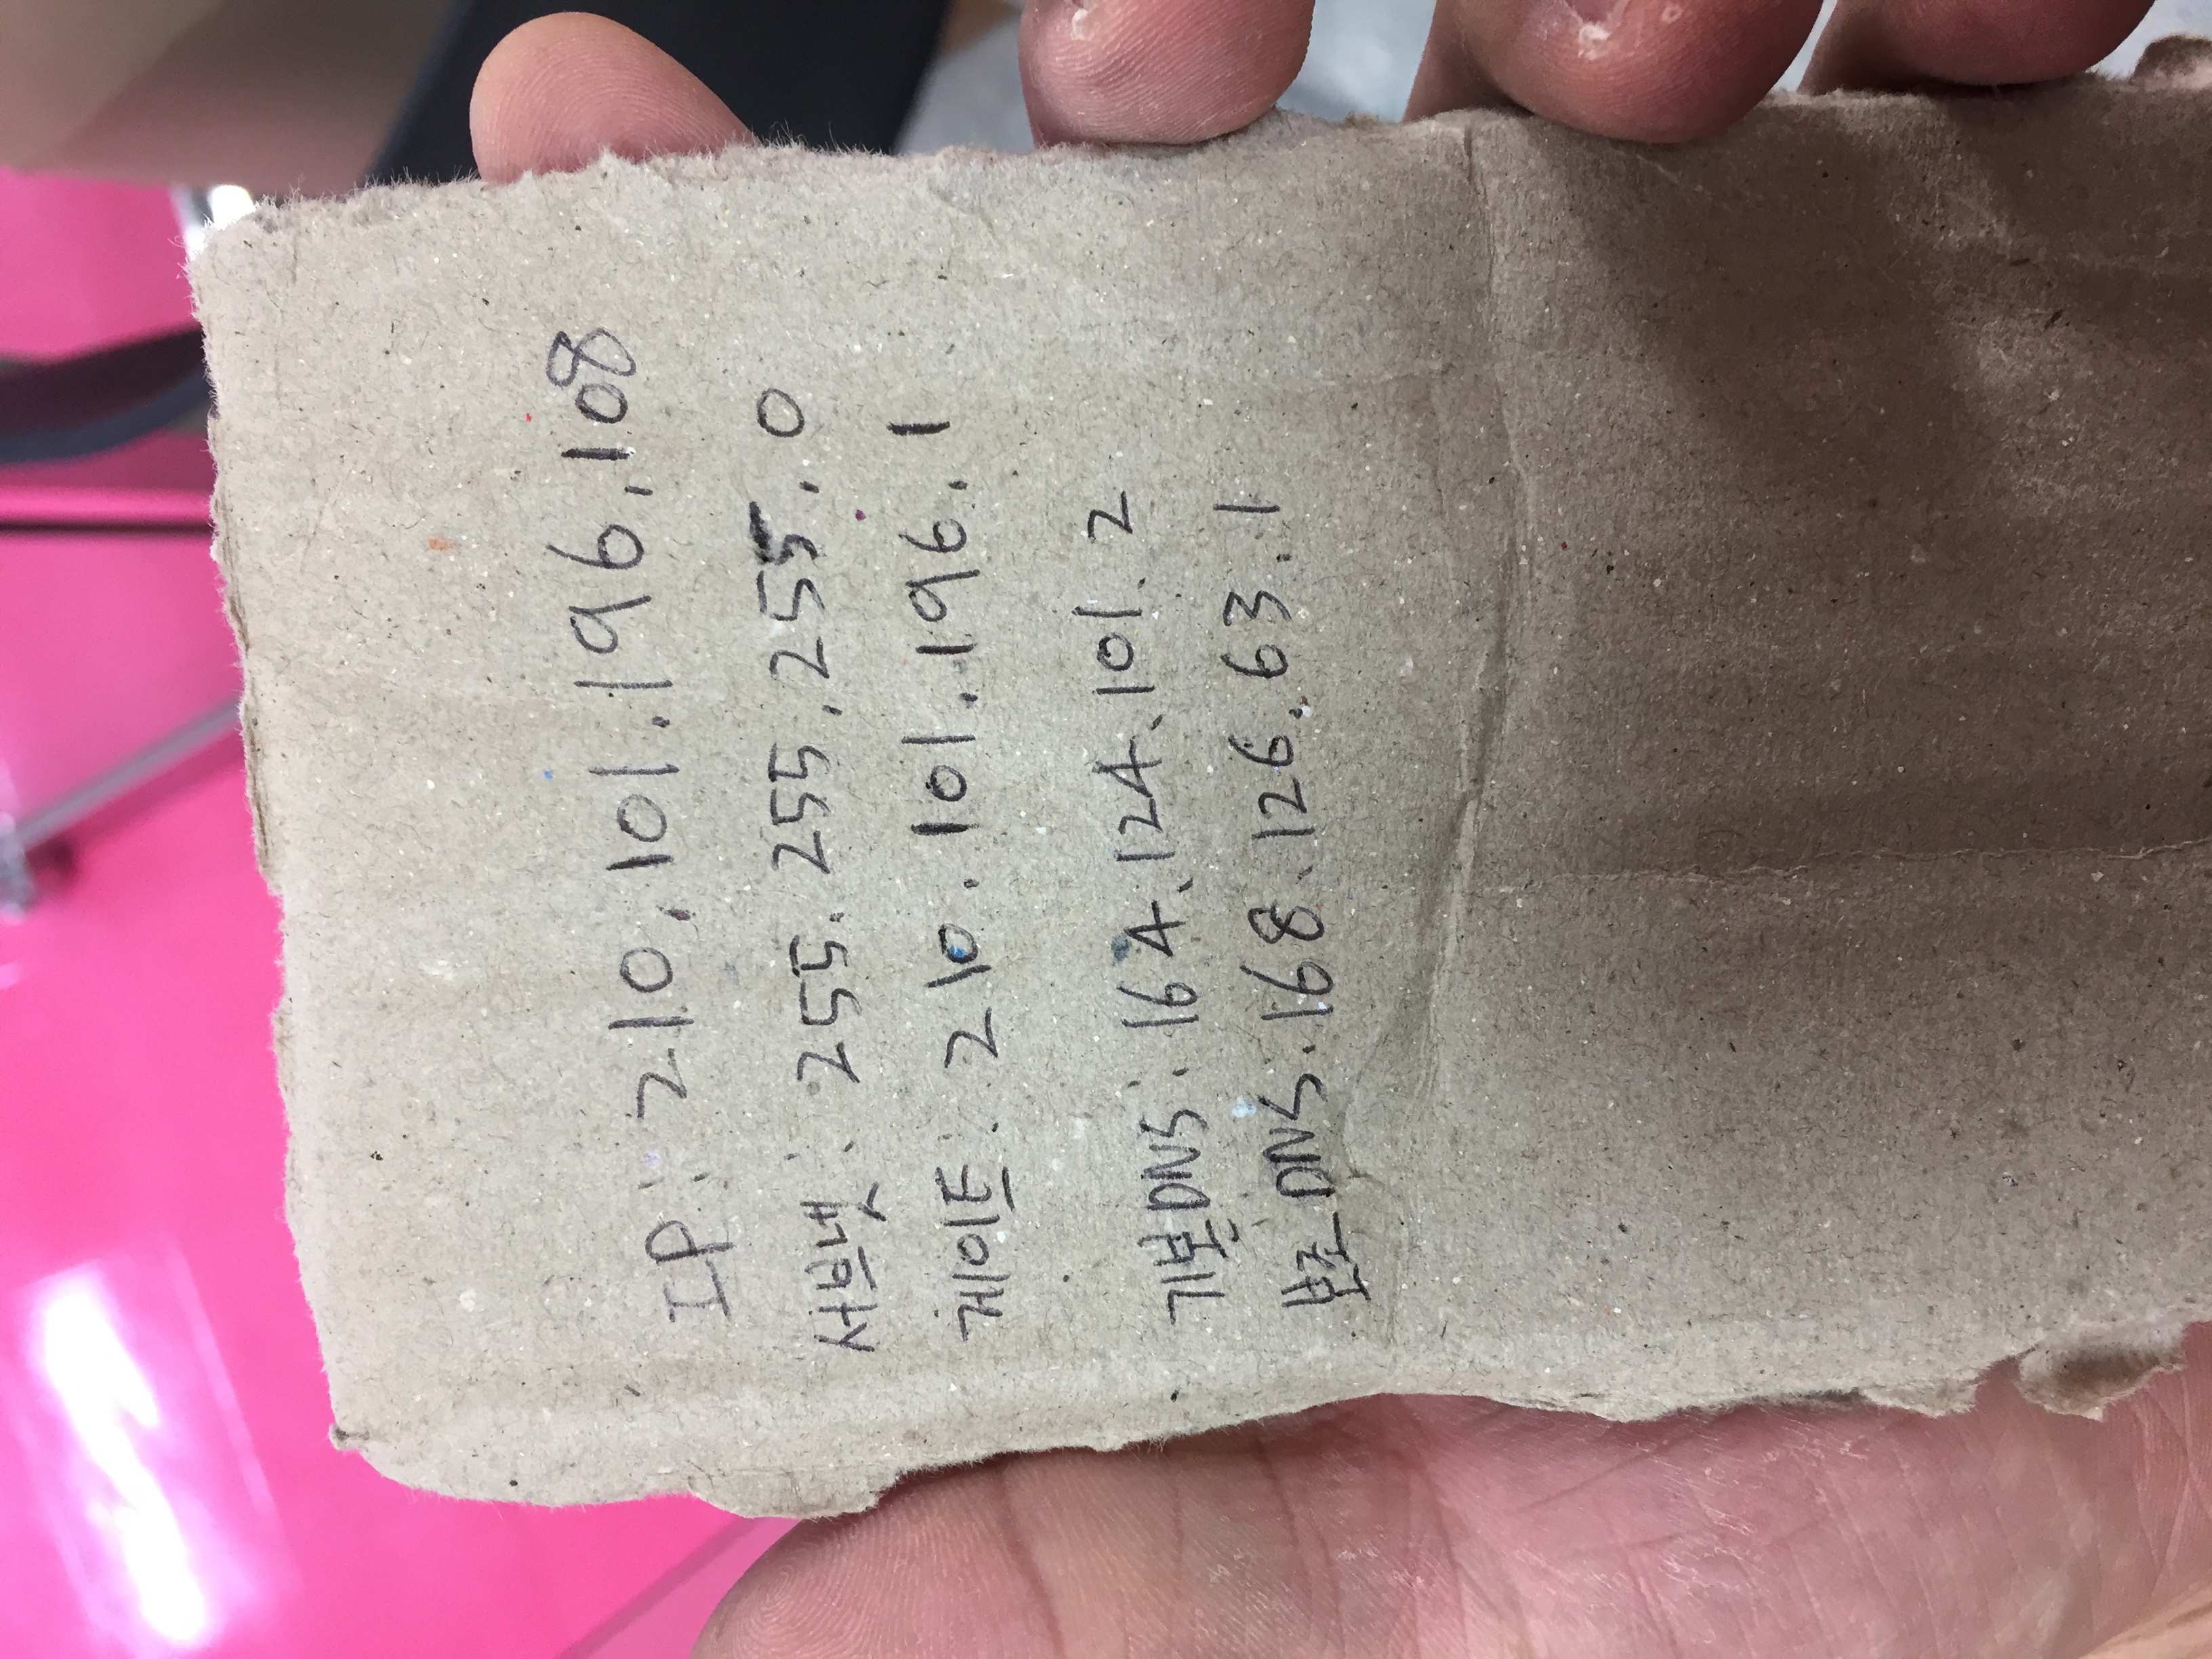 IP : 210.101.196.108
서브넷 : 255.255.255.0
게이트 : 210.101.196.1
기본DNS : 164.124.101.2
보조DNS : 168.126.63.1